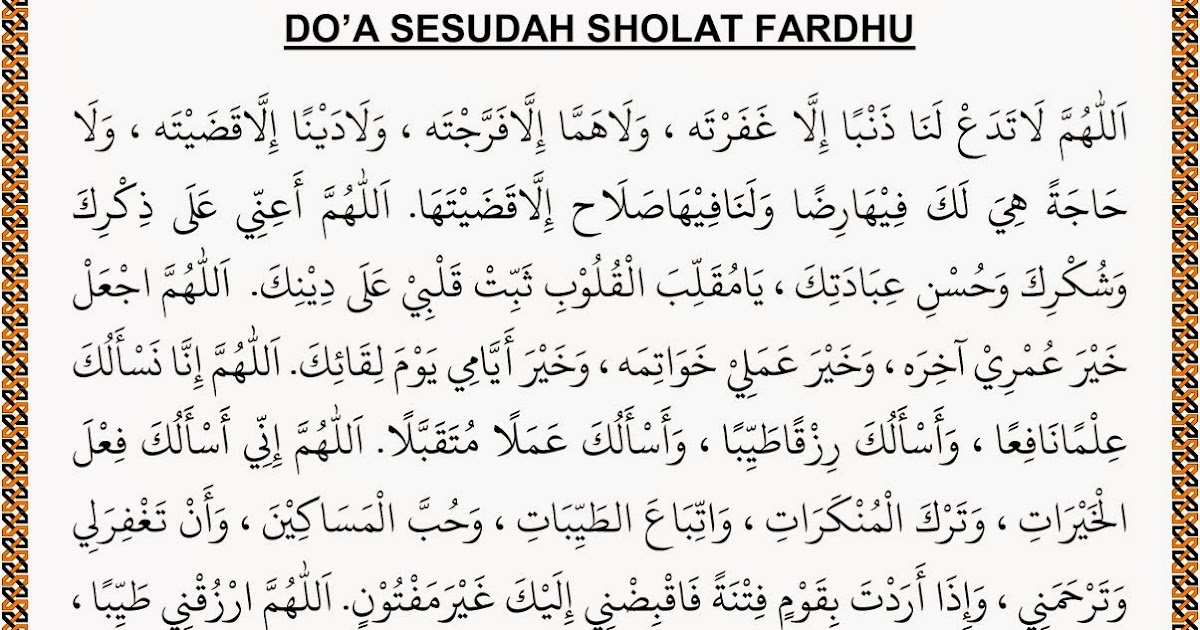 DO’A SESUDAH SHOLAT FARDHU
اَللّٰهُمَّ لَاتَدَعْ لَنَا ذَنْبًا إِلَّا غَفَرْتَه ، وَلَاهَمَّا إِلَّافَرَّجْتَه ، وَلَادَيْنًا إِلَّاقَضَيْتَه ، وَلَا
حَاجَةً هِيَ لَكَ فِيْهَارِضًا وَلَنَافِيْهَاصَلَاح إِلَّاقَضَيْتَهَا. اَللّٰهُمَّ أَعِنِّي عَلَى ذِكْرِكَ
وَشُكْرِكَ وَحُسْنِ عِبَادَتِكَ ، يَامُقَلِّبَ الْقُلُوْبِ ثَبِّتْ قَلْبِيْ عَلَى دِيْنِكَ. اَللّٰهُمَّ اجْعَلْ
خَيْرَ عُمْرِيْ آخِرَه ، وَخَيْرَ عَمَلِيْ خَوَاتِمَه ، وَخَيْرَ أَيَّامِي يَوْمَ لِقَائِكَ. اَللّٰهُمَّ إِنَّا نَسْأَلُكَ
عِلْمًانَافِعًا ، وَأَسْأَلُكَ رِزْقًاطَيِّبًا ، وَأَسْأَلُكَ عَمَلًا مُتَقَبَّلًا. اَللّٰهُمَّ إِنِّي أَسْأَلُكَ فِعْلَ
الْخَيْرَاتِ ، وَتَرْكَ الْمُنْكَرَاتِ ، وَاتِّبَاعَ الطَيِّبَاتِ ، وَحُبَّ الْمَسَاكِيْنَ ، وَأَنْ تَغْفِرَلِي
وَتَرْحَمَنِي ، وَإِذَا أَرَدْتَ بِقَوْمٍ فِتْنَةً فَاقْبِضْنِي إِلَيْكَ غَيْرَمَفْتُوْنٍ. اَللّٰهُمَّ ارْزُقْنِي طَيِّبًا ،